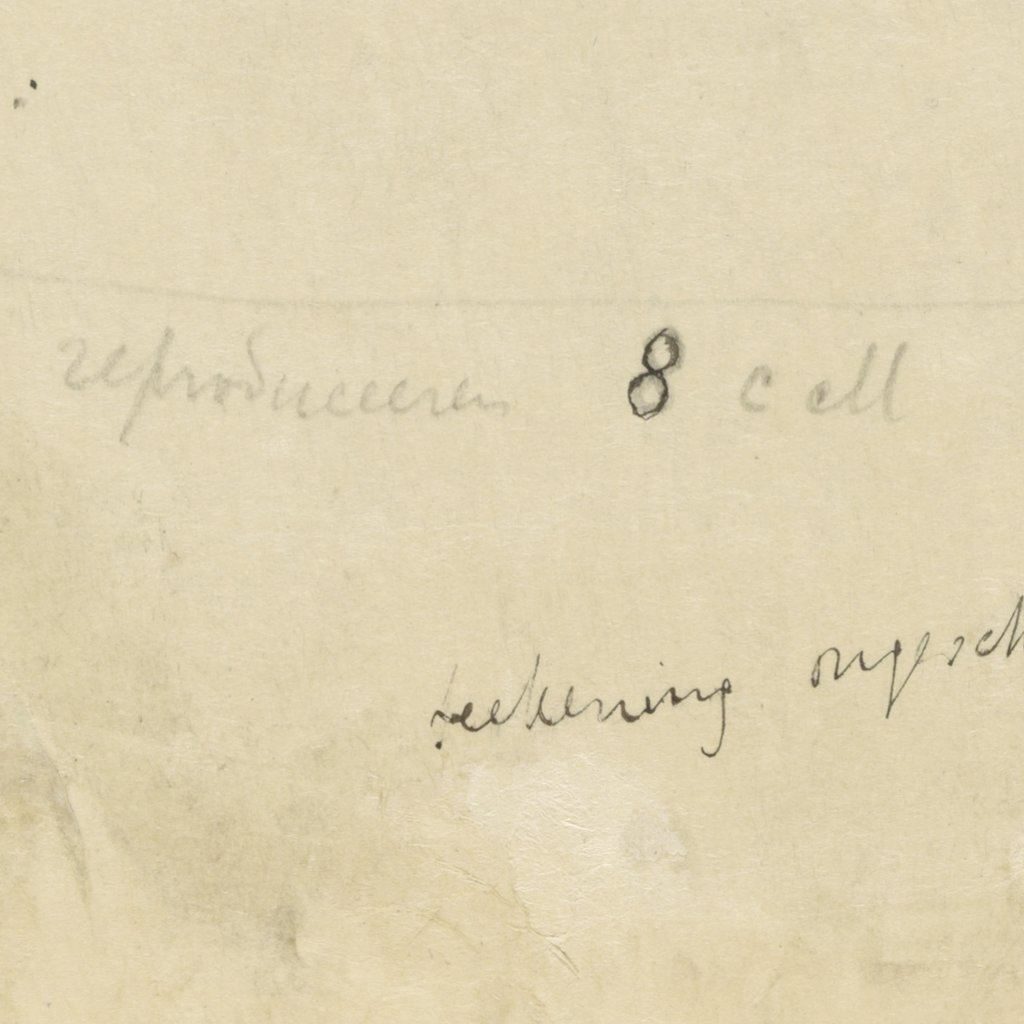 reproduceeren 8 c ell
teekening ongesch